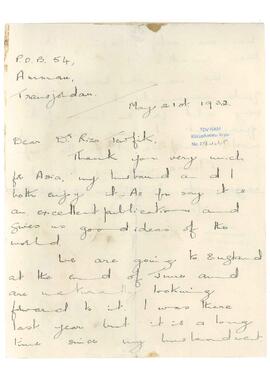 P.O.B. 54,
Amman,
Transjordan.
May 21st 1932
Dear Dr Riza Tewfik,
Thank you very much
for Asia, my husband and I
both enjoy it. As you say it is
an excellent publication and
gives us good ideas of the
world
We are going to England
at the end of June and
are naturally looking
forward to it. I was there
last year but it is a long
time since my husband went